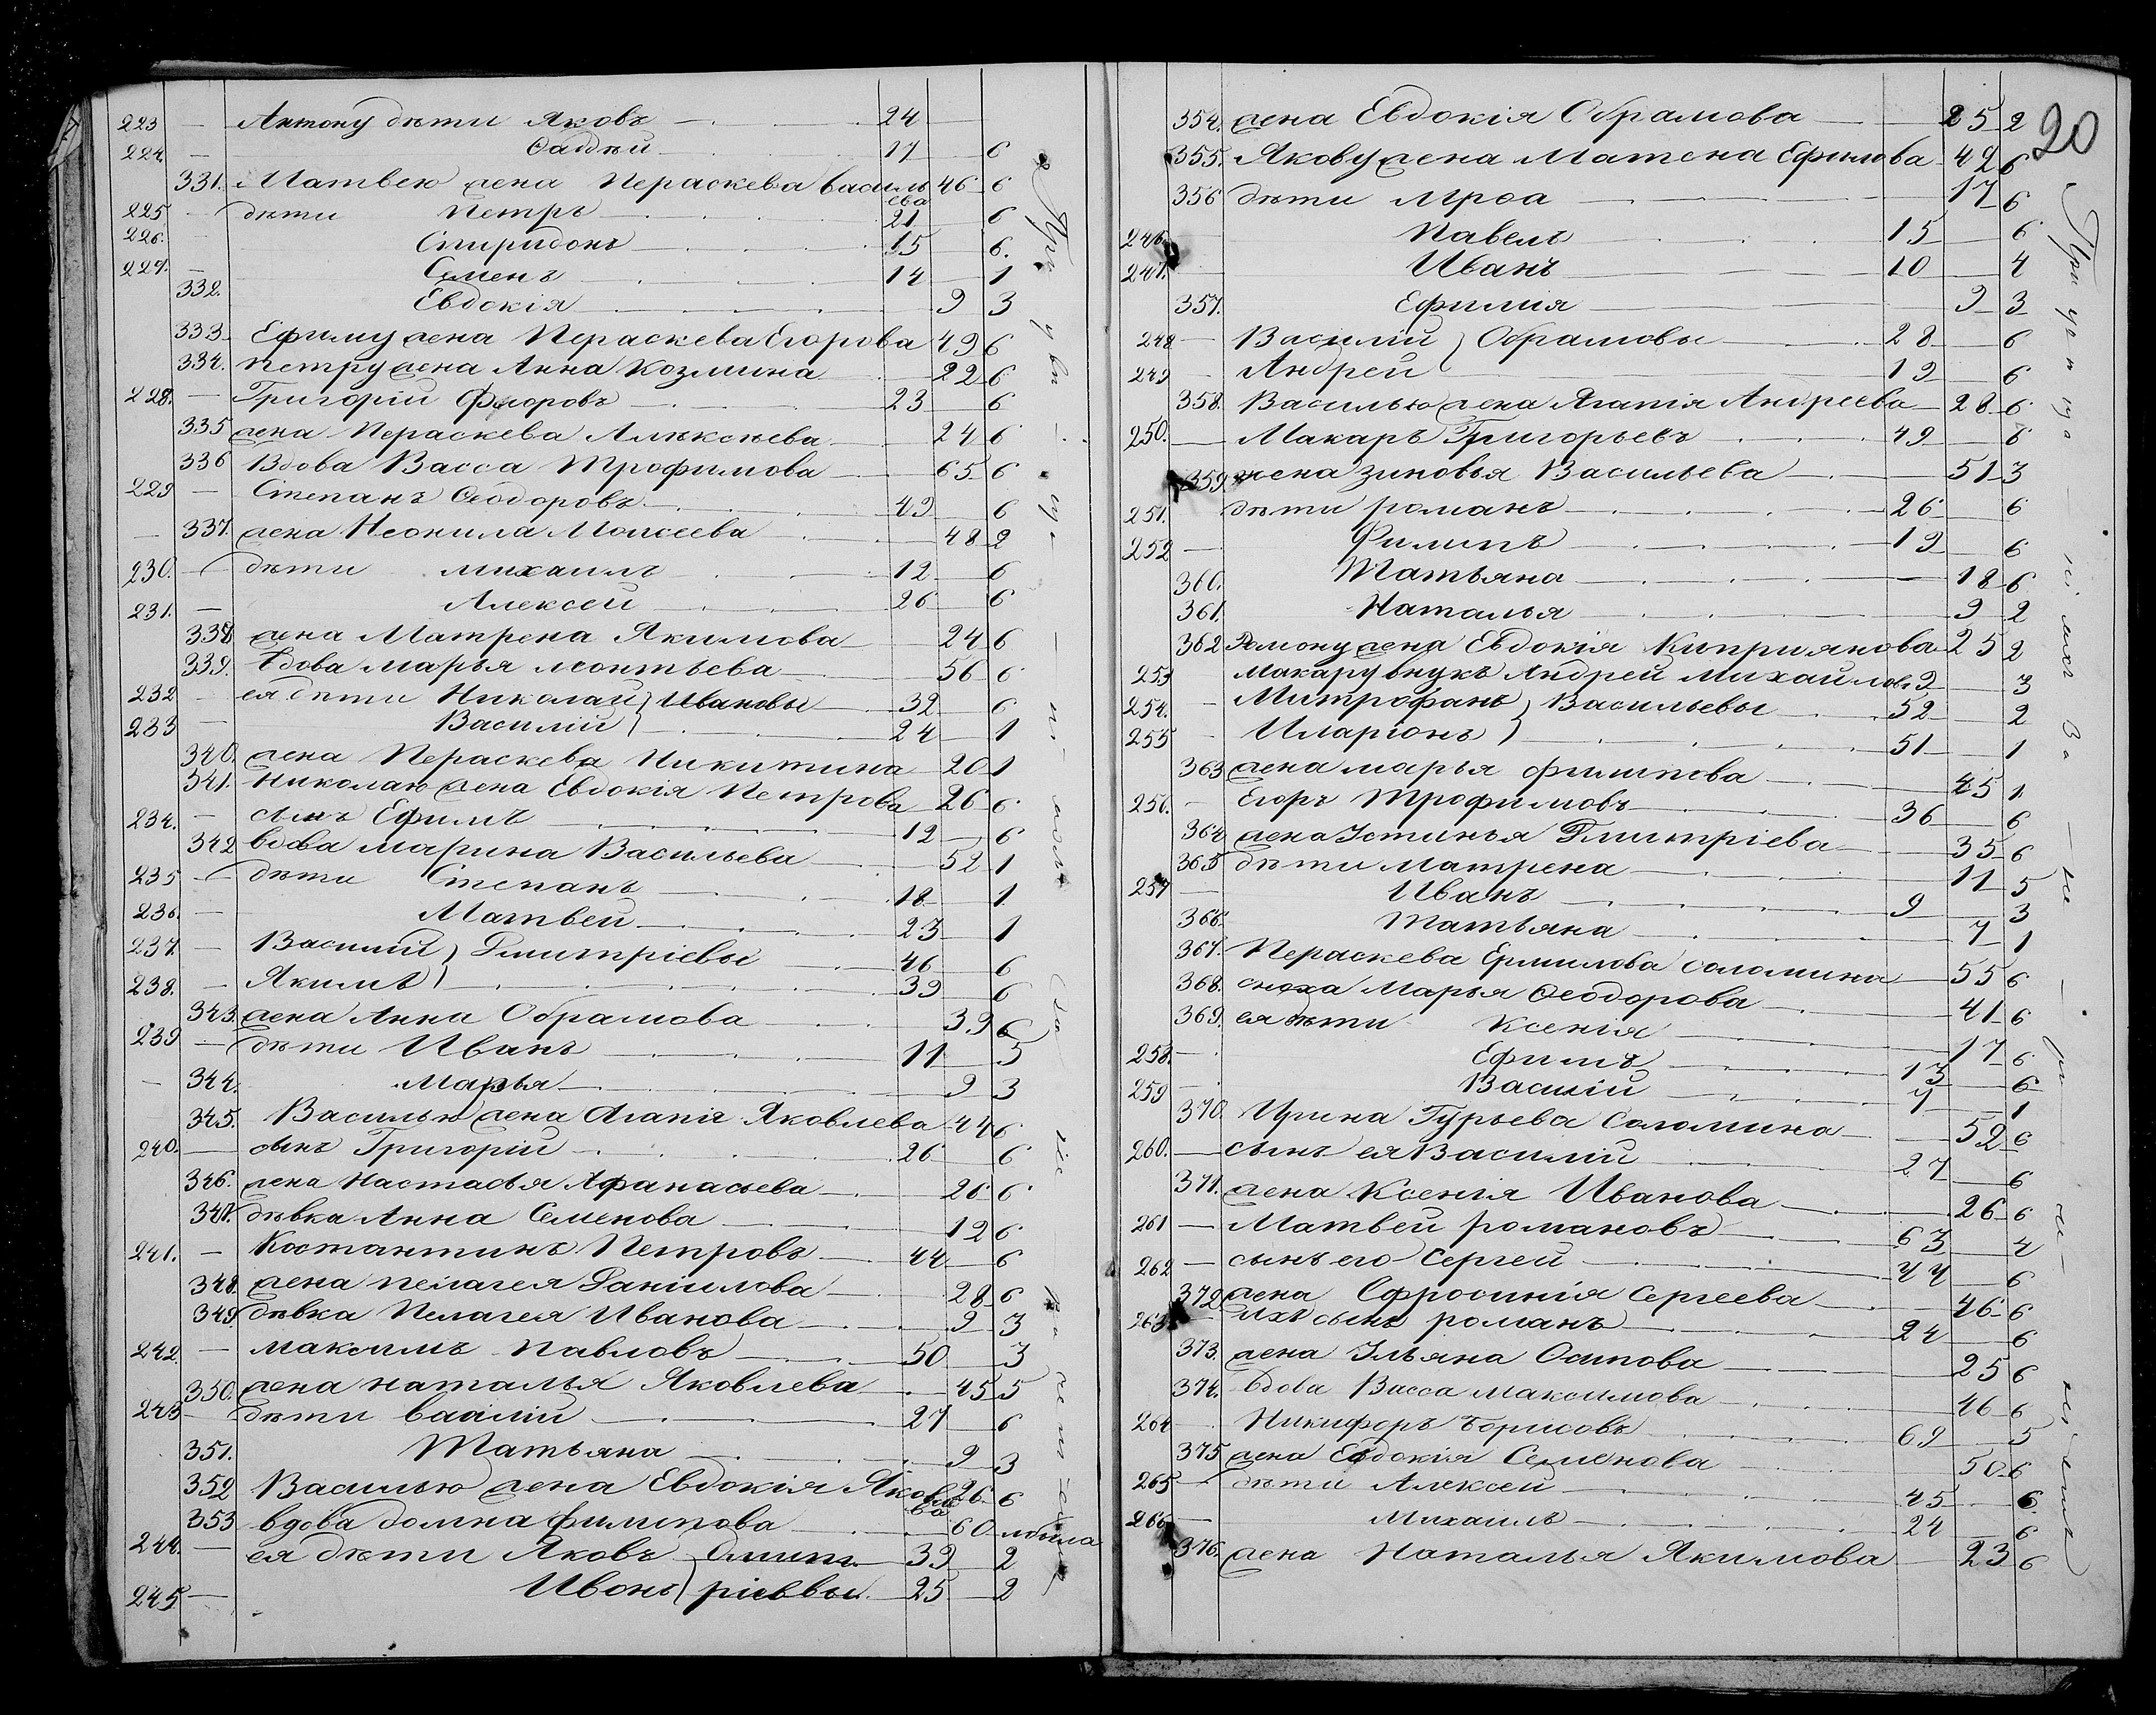 223 — Антону дѣти Яковъ — 24
224 — Фаддѣй — 17 — 6
331. Матвею жена Пераскева Василь 46 6
ева
225 — дѣти Петръ — 21 6
226. Спиридонъ — 15 — 6.
227. — Семенъ — 14 — 1
332. Евдокія — 9 3
333 Ефиму жена Пераскева Егорова 49 6
334. Петру жена Анна Козмина 22 6
228. — Григорій Федоровъ — 23 — 6
335 жена Пераскева Алѣксѣева — 24 6
336 Вдова Васса Трофимова — 65 6
229 — Степанъ Феодоровъ — 49 6
337. жена Неонила Моисеева — 48 2
230. — дѣти Михаилъ 12 — 6
231. — Алексѣй — 26 — 6
338 жена Матрена Якимова — 24 6
339. Вдова Марья Леонтьева — 56 6
232 — ея дѣти Николай } Ивановы — 32 — 6
233 — Василій } — 24 — 1
340. жена Пераскева Никитина — 20 1
341. Николаю жена Евдокія Петрова 26 6
234. — сынъ Ефимъ — 12 — 6
342 вдова Марина Васильева — 52 1
235 — дѣти Степанъ — 18 — 1
236. — Матвей — 23 — 1
237. — Василий } Дмитріевы — 46 — 6
238. — Якимъ } — 39 — 6
343. жена Анна Обрамова — 39 6
239 — дѣти Иванъ — 11 — 5
344. Марья — 9 3
345. Василью жена Агапія Яковлева 44 6
240. — сынъ Григорій — 26 — 6
346. жена Настасья Афанасьева — 26 6
347. дѣвка Анна Семенова — 12 6
241. — Костантинъ Петровъ — 44 — 6
348. жена Пелагея Даніилова — 28 6
349. дѣвка Пелагея Иванова — 9 3
242. — Максимъ Павловъ — 50 — 3
350. жена Наталья Яковлева — 45 5
243 — дѣти Василій — 27 — 6
351. Татьяна — 9 3
352 Василью жена Евдокія Яковле 26 6
ва
353 вдова Домна Филипова — 60
244. — ея дѣти Яковъ } Дмит — 39 — 2
245 — Ивонъ } ріевы — 25 — 2
20
354. жена Евдокія Обрамова — 25 2
355. Якову жена Матена Ефимова 42 6
356 дѣти — 17 6
246. Павелъ — 15 — 6
247. Иванъ — 10 — 4
357. Ефимия — 9 3
248 — Василій } Обрамовы — 28 — 6
249 — Андрей } 19 — 6
358. Василью жена Агапія Андреева — 28 6
250. — Макаръ Григорьевъ — 49 — 6
359. жена Зиновья Васильева — 51 3
251. дѣти Романъ — 26 — 6
252 — Филипъ — 19 — 6
360. Татьяна — 18 6
361. Наталья — 9 2
362 Роману жена Евдокія Киприянова 25 2
253 Макару внукъ Андрей Михайловъ 9 — 3
254. — Митрофанъ } Васильевы — 52 — 2
255 — Иларіонъ } — 51 — 1
363 жена Марья Филипова — 45 1
256. — Егоръ Трофимовъ — 36 — 6
364 жена Устинья Дмитріева — 35 6
365 дѣти Матрена — 11 5
257 — Иванъ — 9 — 3
366. Татьяна — 7 1
367. Пераскева Ермилова Соломина — 55 6
368. сноха Марья Феодорова — 41 6
369. ея дѣти Ксенія — 17 6
258. — Ефимъ — 13 — 6
259 — Василій — 7 — 1
370. Ирина Гурьева Соломина — 52 6
260. — сынъ ея Василій — 27 — 6
371. жена Ксенія Иванова — 26 6
261 — Матвей Романовъ — 63 — 4
262 — сынъ его Сергей — 44 — 6
372 жена Офросинія Сергеева — 46 6
263 — ихъ сынъ Романъ — 24 — 6
373. жена Ульяна Осипова — 25 6
374. вдова Васса Максимова — 46 6
264 — Никифоръ Борисовъ — 69 — 5
375 жена Евдокія Семенова — 50 6
265 — дѣти Алексѣй — 45 — 6
266 — Михаилъ — 24 — 6
376. жена Наталья Якимова — 23 6